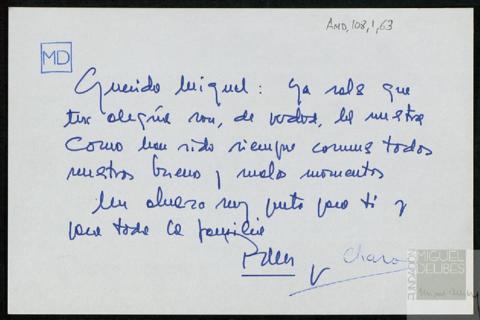 AMD,108,1,63
MD
Querido Miguel: Ya sabes que
tus alegrías son, de verdad, las nuestras
Como han sido siempre comunes todos
nuestros buenos y malos momentos
Un abrazo muy fuerte para ti y
para toda la familia
y Charo
FUNDACIÓN
MIGUEL
DELIBES